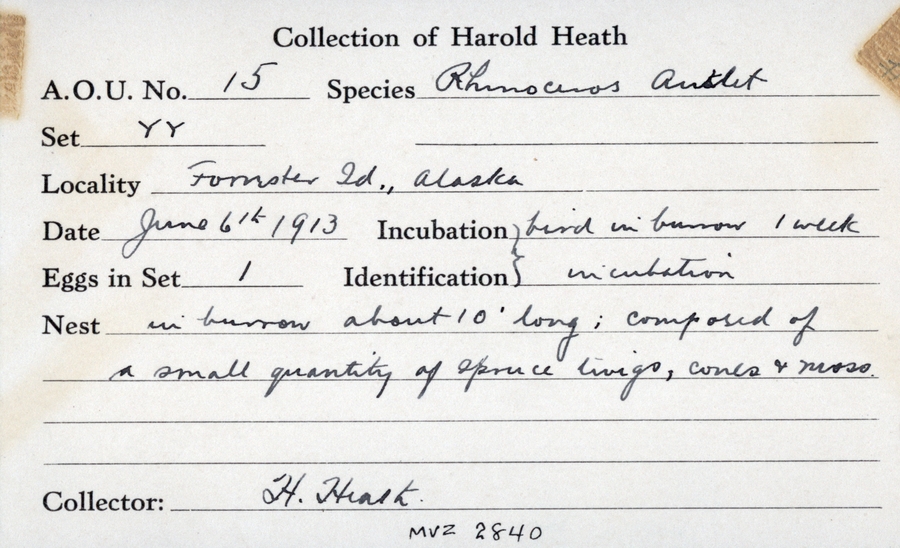 Collection of Harold Heath
A.O.U. No. 15 Species Rhinoceros Auklet
Set YY
Locality Forrester Id., Alaska
Date June 6th 1913 Incubation } bird in burrow 1 week
Eggs in Set 1 Identification } incubation
Nest in burrow about 10' long; composed of
a small quantity of spruce twigs, cones & moss.
Collector: H. Heath.
MVZ 2840